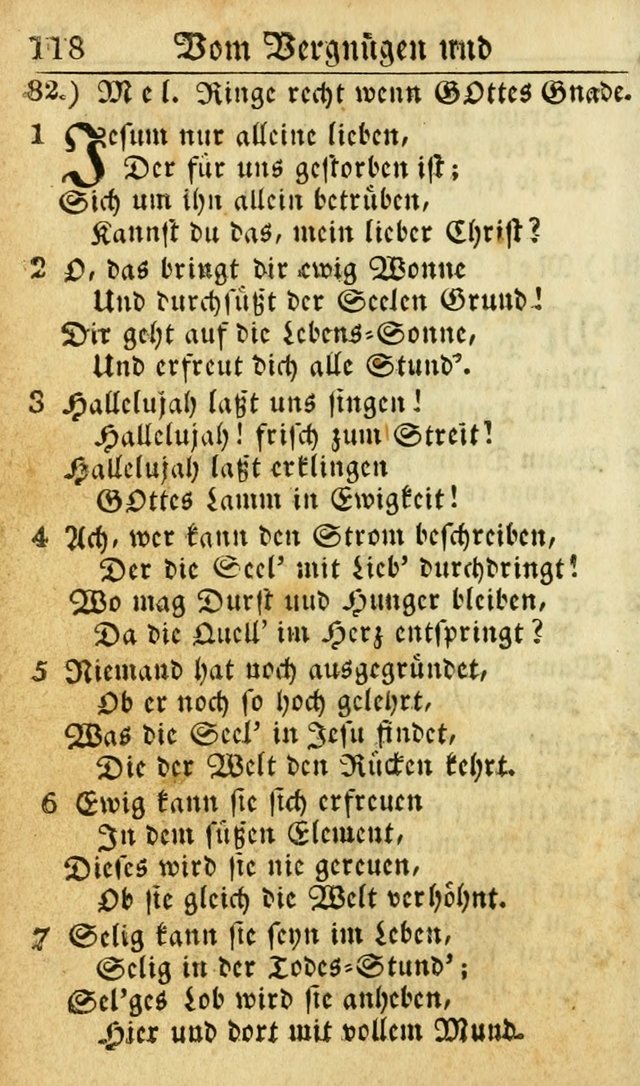 118 Vom Vergnuͤgen und
82.) Mel. Ringe recht wenn GOttes Gnade.
1 Jesum nur alleine lieben,
Der fuͤr uns gestorben ist;
Sich um ihn allein betruͤben,
Kannst du das, mein lieber Christ?
2 O, das bringt dir ewig Wonne
Und durchsuͤßt der Seelen Grund!
Dir geht auf die Lebens-Sonne,
Und erfreut dich alle Stund'.
3 Hallelujah laßt uns singen!
Hallelujah! frisch zum Streit!
Hallelujah laßt erklingen
GOttes Lamm in Ewigkeit!
4 Ach, wer kann den Strom beschreiben,
Der die Seel' mit Lieb' durchdringt!
Wo mag Durst und Hunger bleiben,
Da die Quell' im Herz entspringt?
5 Niemand hat noch ausgegruͤndet,
Ob er noch so hoch gelehrt,
Was die Seel' in Jesu findet,
Die der Welt den Ruͤcken kehrt.
6 Ewig kann sie sich erfreuen
In dem suͤßen Element,
Dieses wird sie nie gereuen,
Ob sie gleich die Welt verhoͤhnt.
7 Selig kann sie seyn im Leben,
Selig in der Todes-Stund';
Sel'ges Lob wird sie anheben,
Hier und dort mit vollem Mund.